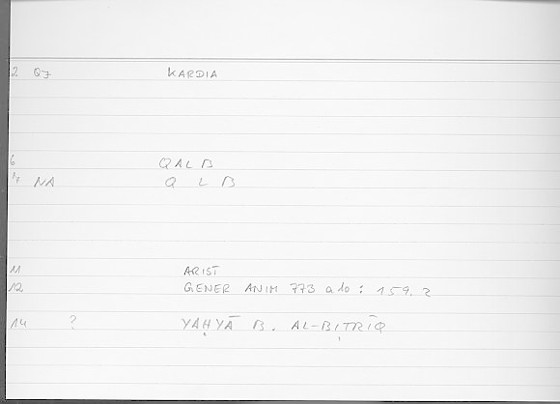 2 Q7 KARDIA
6 QALB
7 NA Q L B
11 ARIST
12 GENER ANIM 773 a 10 : 159.2
14 ? YAḤYĀ B. AL-BIṬRĪQ